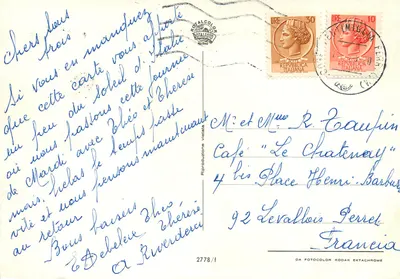 Chers tous
trois,
Si vous en manquez
que cette carte vous apporte
un peu du soleil d'Italie
où nous passons cette journée
de Mardi avec Théo et Thérèse
mais, hélas le temps passe
vite et nous pensons maintenant
au retour
Bons baisers
Théo, Thérèse
A Riverderci
2778/I
30
10
M. et Mme R. Taupin
Café "Le Chatenay"
4 bis Place Henri Barbusse
92 Levallois Perret
Francia
DA FOTOCOLOR KODAK EKTACHROME